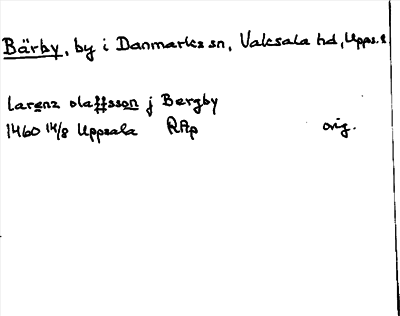 Bärby, by i Danmarks sn, Vaksala hd, Upps. l.
larenz olaffsson j Bergby
1460 14/8 Uppsala RAp orig.